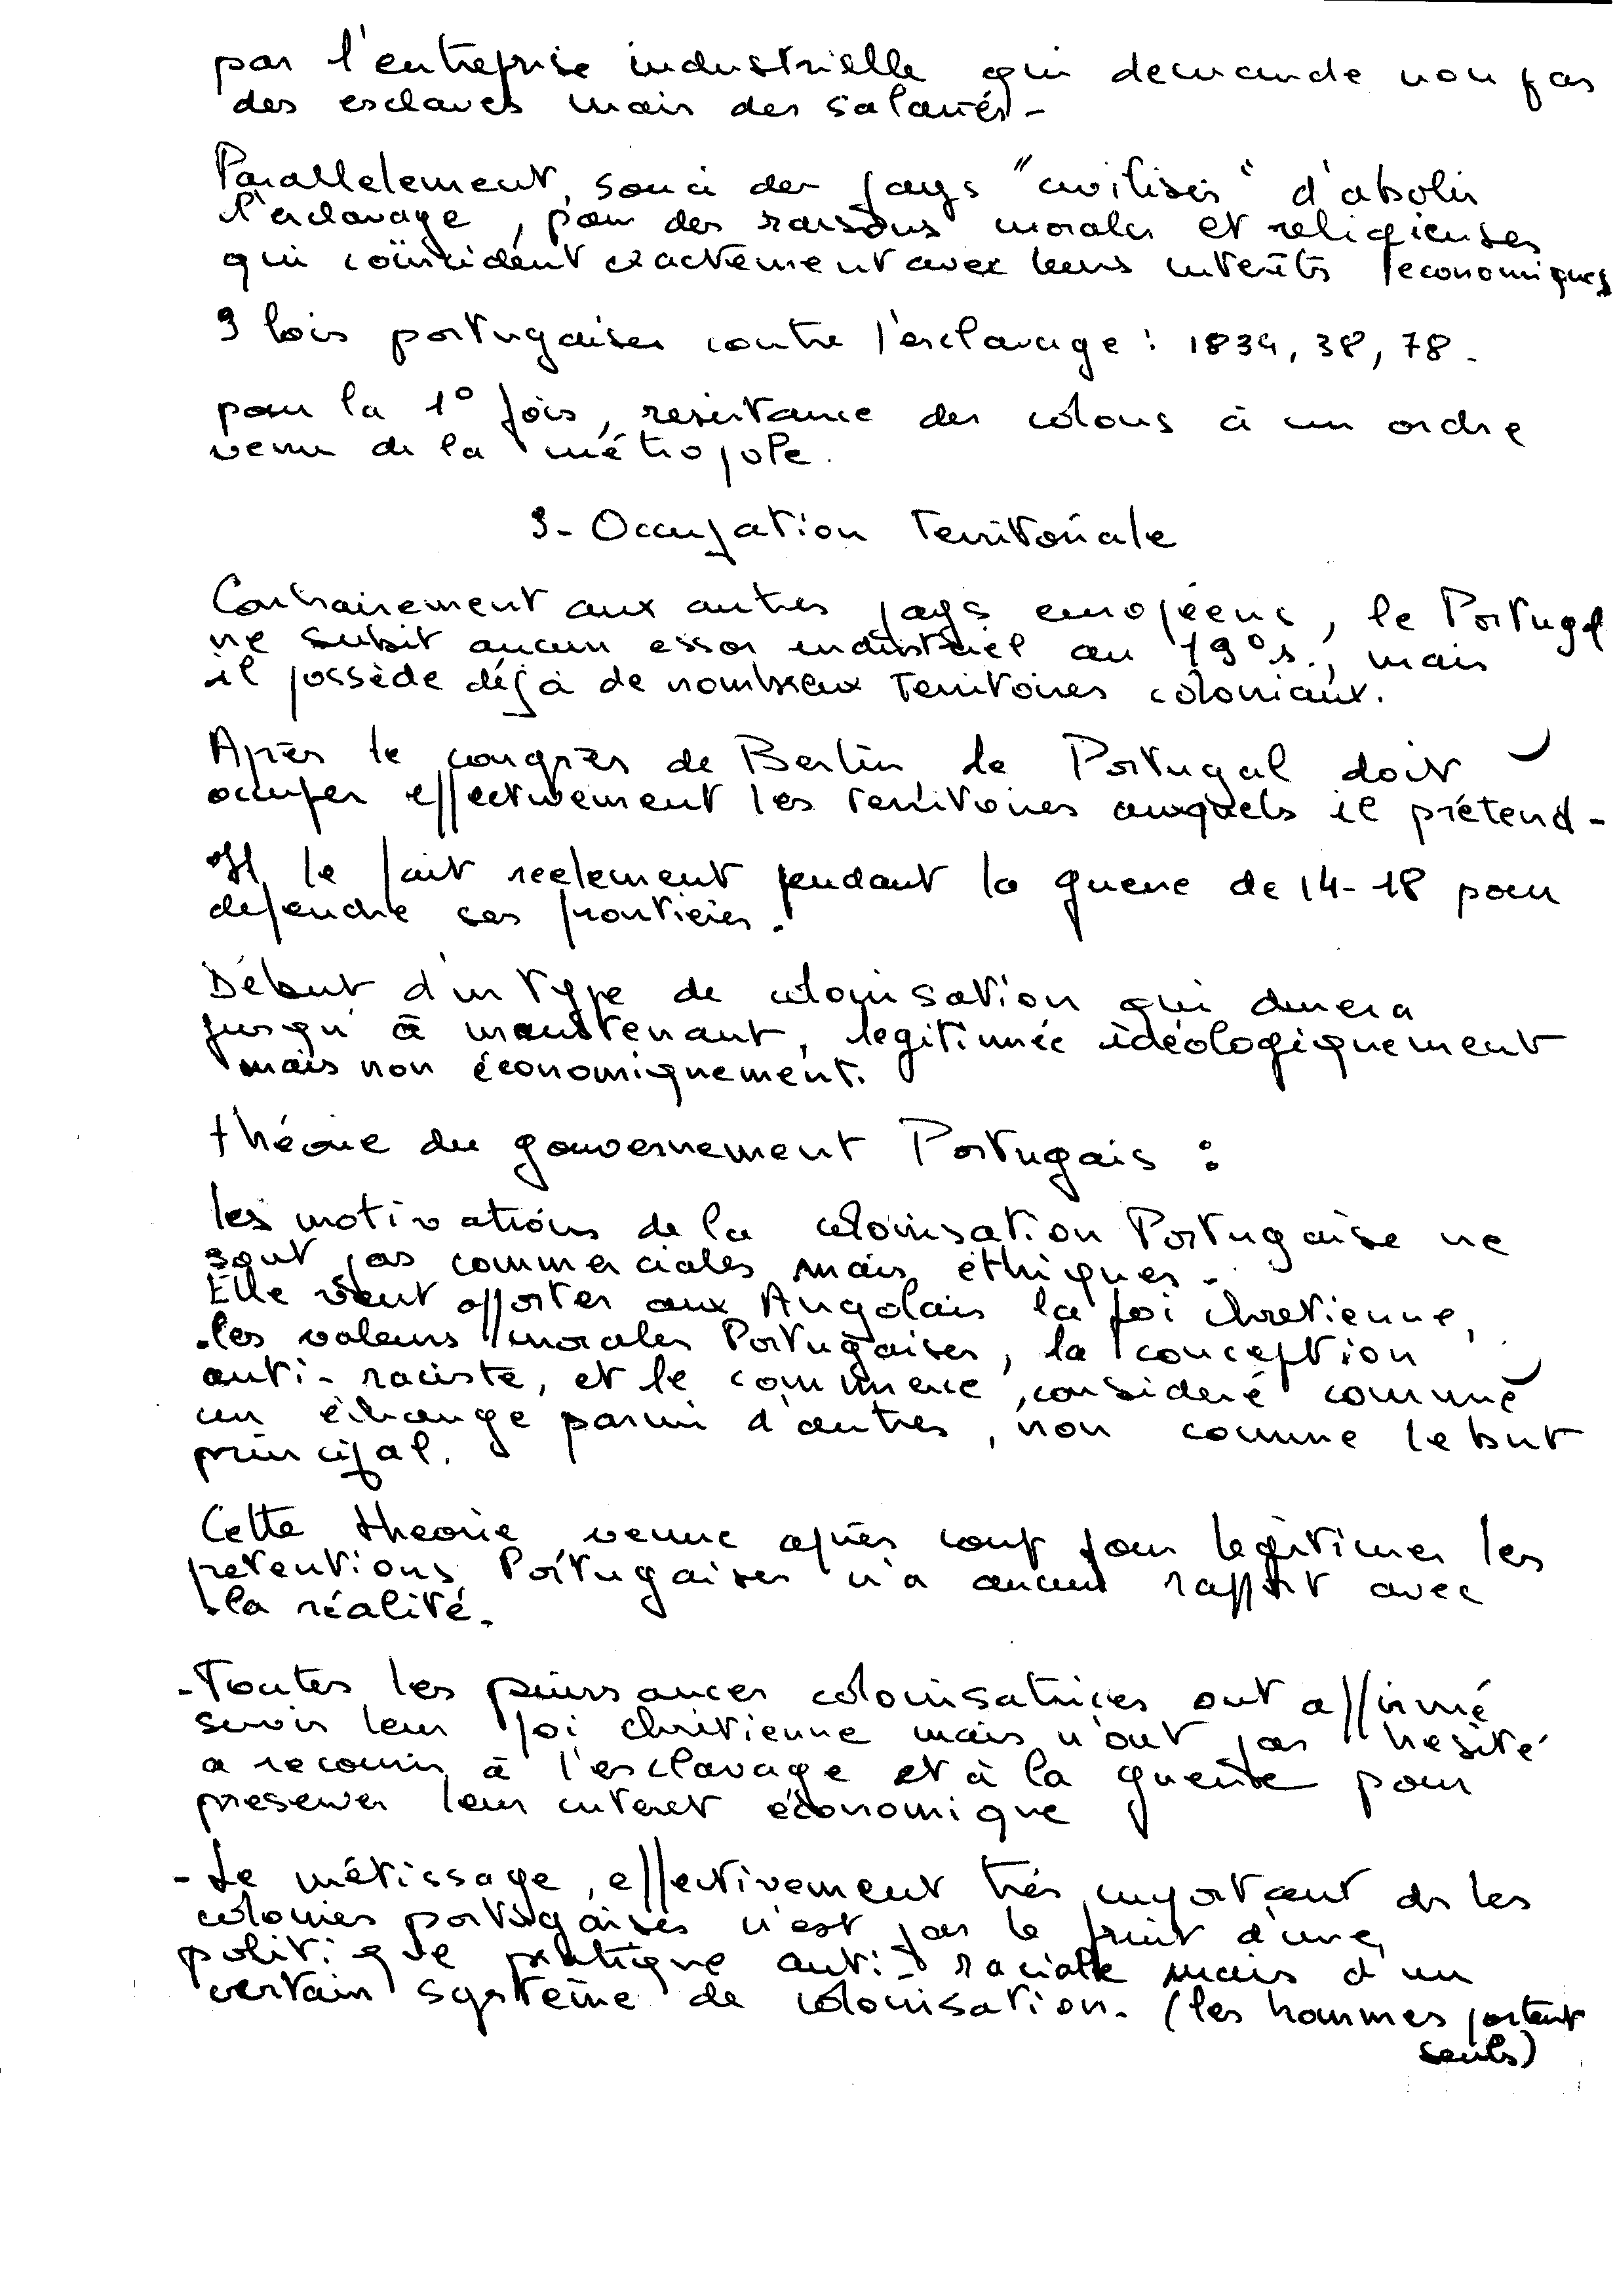 par l'entreprise industrielle qui demande non pas
des esclaves mais des salariés -
Parallelement, souci des pays "civilisés" d'abolir
l'esclavage, pour des raisons morales et religieuses
qui coïncident exactement avec leurs interêts economiques
3 lois portugaises contre l'esclavage : 1834, 38, 78 -
pour la 1° fois, resistance des colons à un ordre
venu de la métropole.
3 - Occupation Territoriale
Contrairement aux autres pays européens, le Portugal
ne subit aucun essor industriel au 19° s., mais
il possède déjà de nombreux Territoires coloniaux.
Après le congrès de Berlin le Portugal doit
occuper effectivement les territoires auxquels il prétend -
Il le fait reelement pendant la guerre de 14-18 pour
defendre ses frontières.
Début d'un Type de colonisation qui durera
jusqu'à maintenant, legitimée idéologiquement
mais non économiquement.
théorie du gouvernement Portugais :
les motivations de la colonisation Portugaise ne
sont pas commerciales mais éthiques -
Elle veut apporter aux Angolais la foi chretienne,
les valeurs morales Portugaises, la conception
anti-raciste, et le commerce, consideré comme
un échange parmi d'autres, non comme le but
principal.
Cette theorie, venue après coup pour legitimer les
pretentions Portugaises n'a aucun rapport avec
la réalité.
- Toutes les puissances colonisatrices ont affirmé
servir leur foi chrétienne mais n'ont pas hesité
a recourir à l'esclavage et à la guerre pour
preserver leur interet économique
- Le métissage, effectivement très important ds les
colonies portugaises n'est pas le fruit d'une
politique pratique anti-raciale mais d'un
certain système de colonisation. (les hommes partent
seuls)